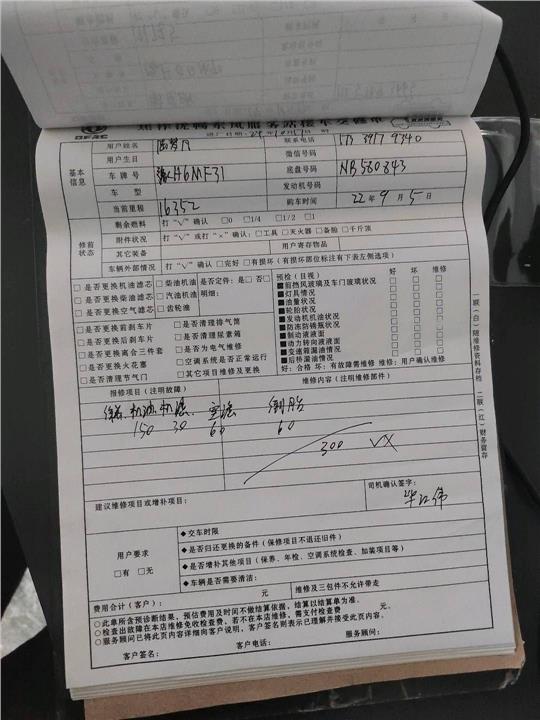 DFAC
东风服务站接车交接单
进厂日期:
用户姓名
联系电话 173 3917 9340
用户生日
微信号码
基本信息
车牌号 H6MF31
底盘号码 NB580843
车型
发动机号码
当前里程 16352
购车时间 22年9月5日
修前状态
剩余燃料 打“√”确认 □0 □1/4 □1/2 □1
附件状况 打“√”或打“×”确认:□工具 □灭火器 □备胎 □千斤顶
其它装备 用户寄存物品
车辆外部情况 打“√”确认 □完好 □有损坏(有损坏部位标注有下表左侧选项)
□是否更换机油滤芯 □柴油机油 是否定件:是□否□
□是否更换柴油滤芯 □汽油机油 明细:
□是否更换空气滤芯 □齿轮油
□是否更换前刹车片 □是否清理排气筒
□是否更换后刹车片 □是否清理尿素箱
□是否更换离合三件套 □是否为电气维修
□是否更换火花塞 □空调系统是否正常运行
□是否清理节气门 □其它项目维修及更换
预检(目视) 好 坏 维修
■前挡风玻璃及车门玻璃状况 □ □ □
■灯具情况 □ □ □
■油量状况 □ □ □
■轮胎状况 □ □ □
■发动机机油状况 □ □ □
■防冻防锈瓶状况 □ □ □
■制动液液面 □ □ □
■动力转向液液面 □ □ □
■变速箱漏油情况 □ □ □
■后桥漏油情况 □ □ □
好:合格 坏:有故障需维修 维修:用户确认维修
报修项目(注明故障) 维修内容(注明维修部件)
机油 机滤 空滤 倒胎
150 30 60 60
300
建议维修项目或增补项目:
司机确认签字:
用户要求
□有 □无
◆交车时限
◆是否归还更换的备件(保修项目不退还旧件)
◆是否增补其他项目(保养、年检、空调系统检查、加装项目等)
◆车辆是否需要清洁:
费用合计(客户): 元 维修及三包件不允许带走
◎此单所含预诊断结果,预估费用及时间不做结算依据,结算以结算单为准。
◎检查出故障在本店维修免收检查费,若不在本店维修,需支付检查费 元。
◎服务顾问已将此页内容详细向客户说明,客户签名则表示已理解并接受此页内容。
客户签名: 客户电话: 服务顾问:
一联(白)随维修资料存档 二联(红)财务留存